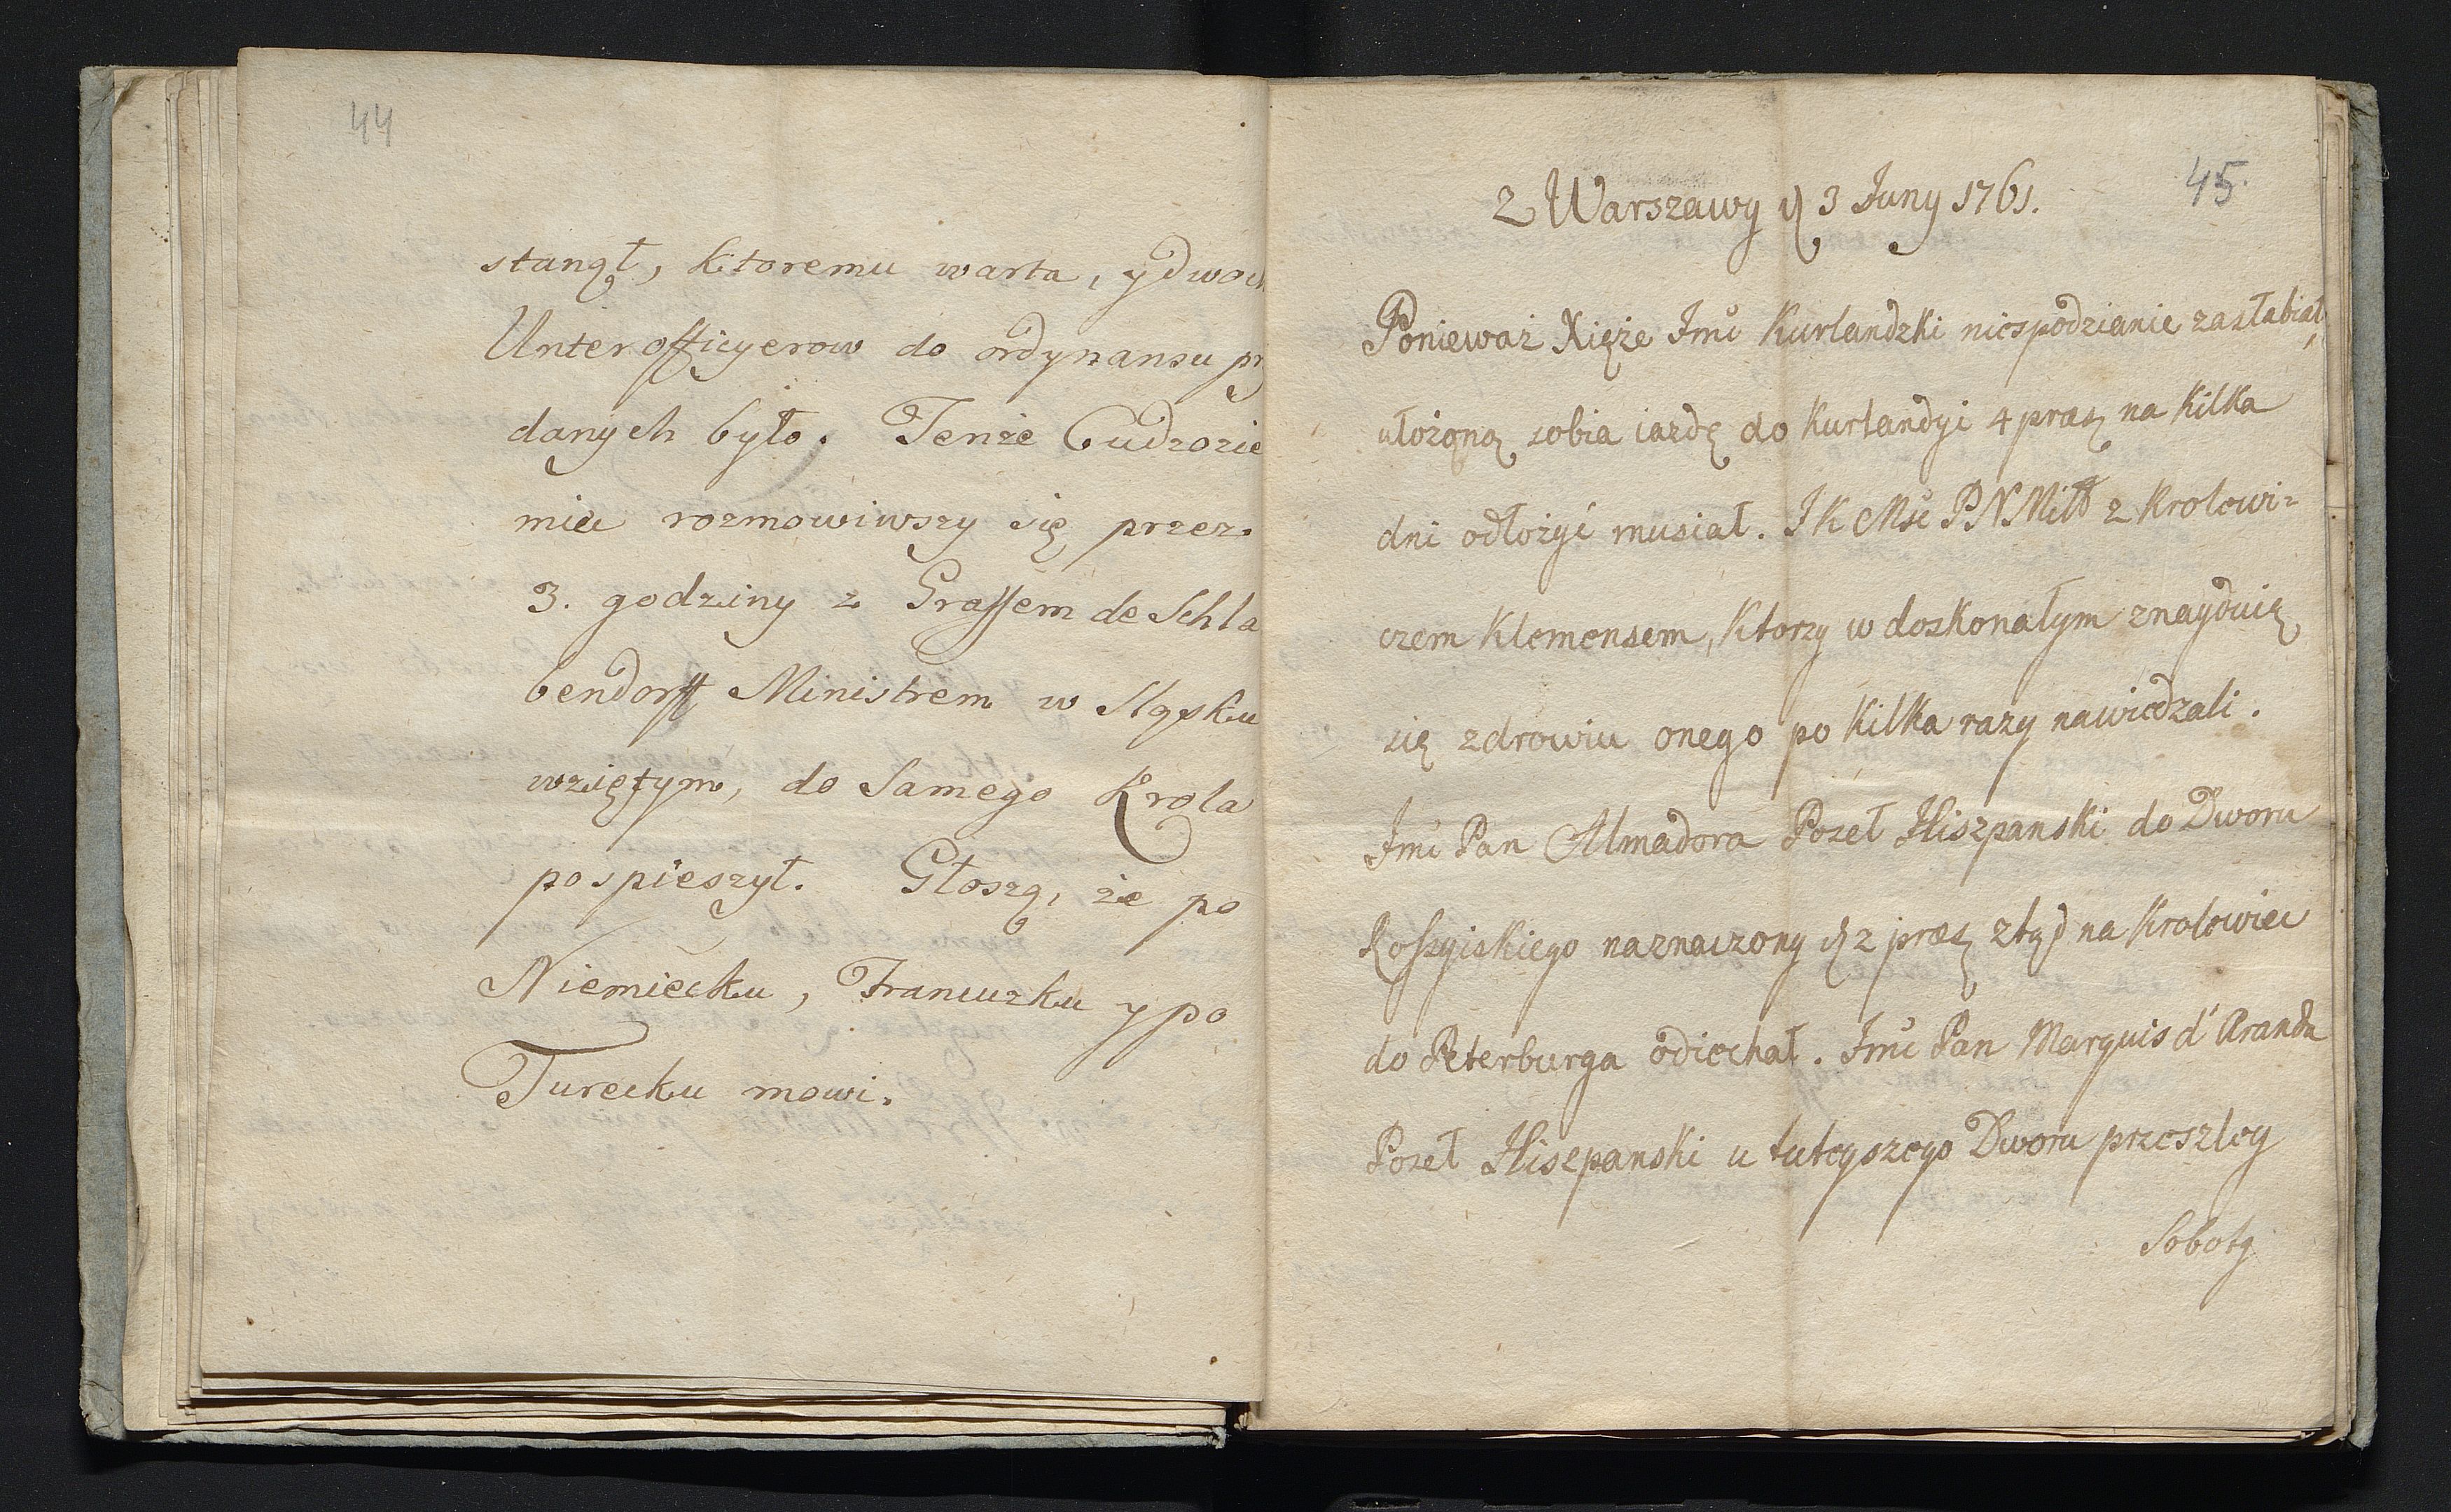 44
stanął, ktoremu warta, y dwoch
Unterofficyerow do ordynansu
danych było. Tenże Cudzozie
miec rozmowiwszy się przez
3. godziny z Graffem de Schla
bendorff Ministrem w Sląsku
wziętym, do Samego Krola
pospieszył. Głoszą, że po
Niemiecku, Francuzku y po
Turecku mowi.
45.
Z Warszawy d 3 Juny 1761.
Ponieważ Xięże Jmć Kurlandzki niespodzianie zasłabiał,
ułożoną sobia iazdę do Kurlandyi 4 praes na kilka
dni odłożyć musiał. J K Mść PNMiłł z Krolowi=
czem Klemensem, ktorzy w doskonałym znayduią
się zdrowiu onego po kilka razy nawiedzali.
Jmć Pan Almadora Poseł Hiszpanski do Dworu
Rossyiskiego naznaczony d 2 praes ztąd na Krolowiec
do Peterburga odiechał. Jmć Pan Marquis d'Aranda
Poseł Hiszpanski u tuteyszego Dworu przeszley
Soboty